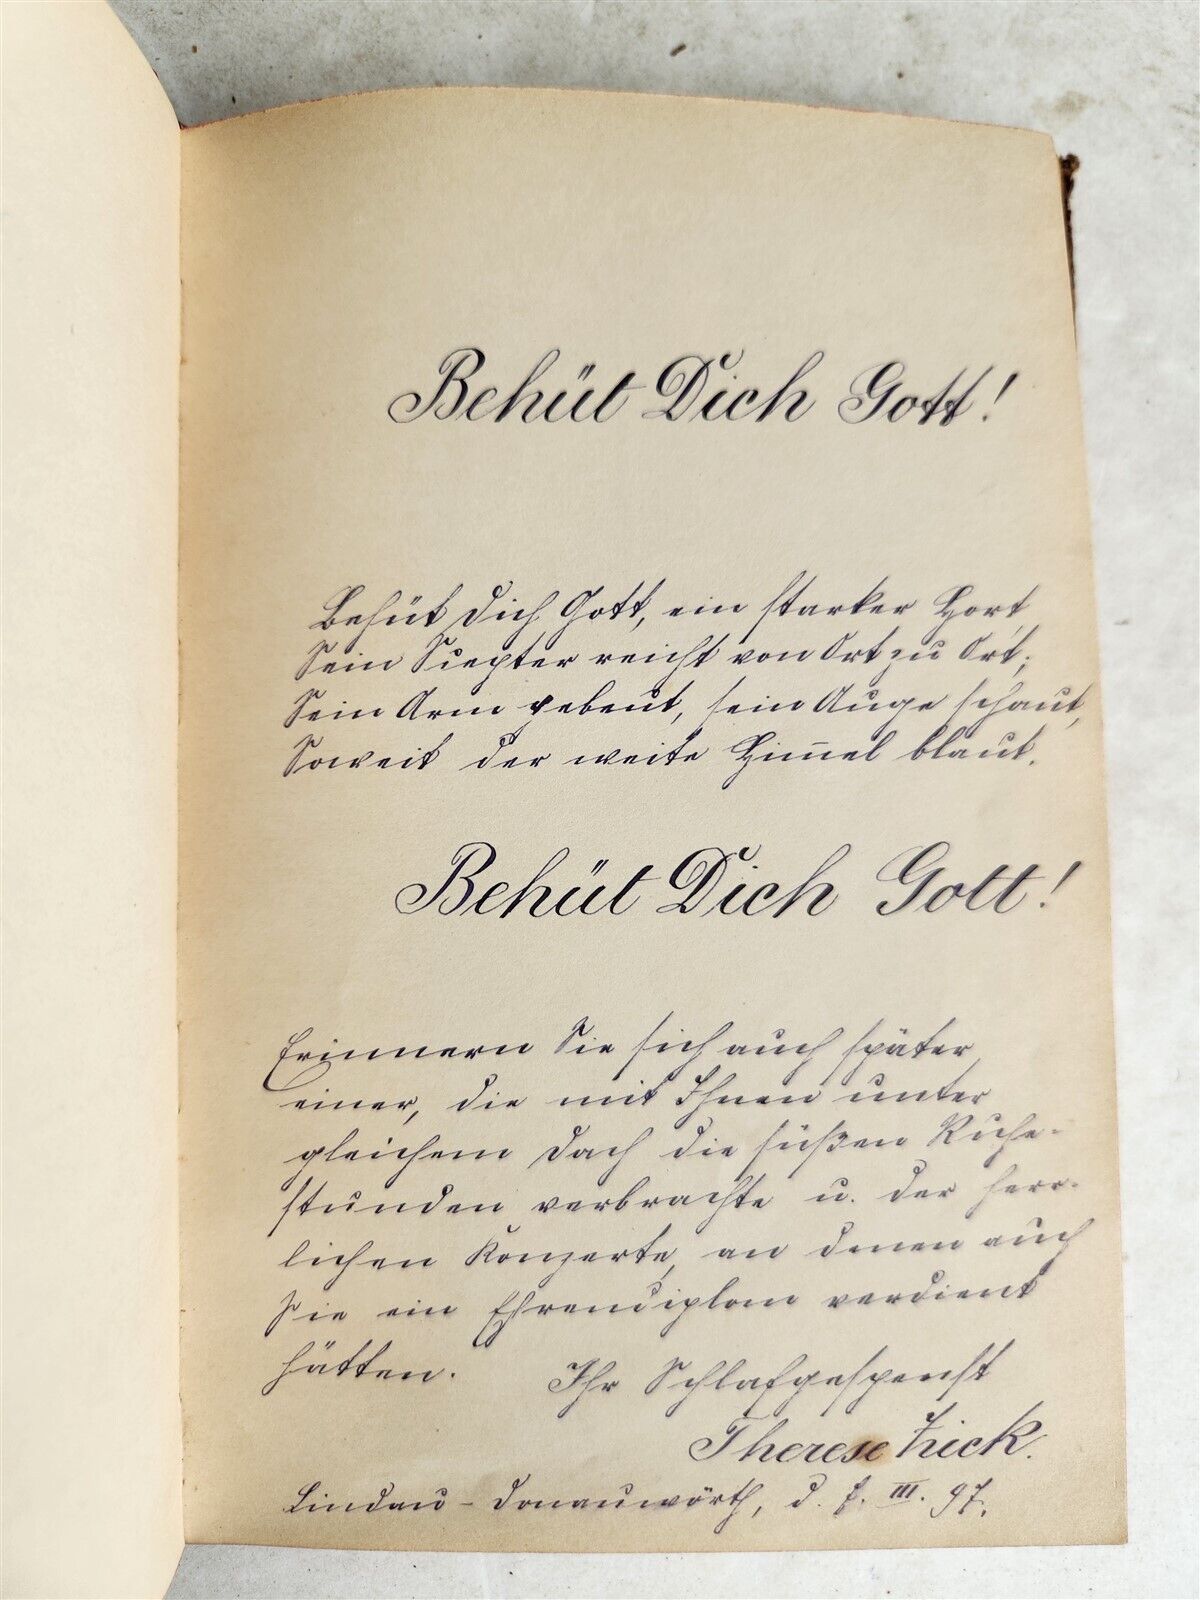 Behüt Dich Gott!
Behüt Dich Gott, ein starker Hort,
Sein Scepter reicht von Ort zu Ort;
Sein Arm gebeut, sein Auge schaut,
Soweit der weite Him̄el blaut.
Behüt Dich Gott!
Erinnern Sie sich auch später
einer, die mit Ihnen unter
gleichem Dach die süßen Ruhe-
stunden verbrachte u. der herr-
lichen Konzerte, an denen auch
Sie ein Ehrendiplom verdient
hätten. Ihr Schlafgespenst
Therese Zick.
Lindau - Donauwörth, d. 7. III. 97.